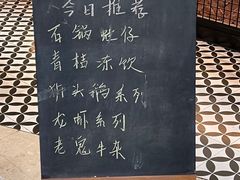 今日推荐
石锅蚝仔
青桔冻饮
狮头鹅系列
龙虾系列
老鬼牛杂